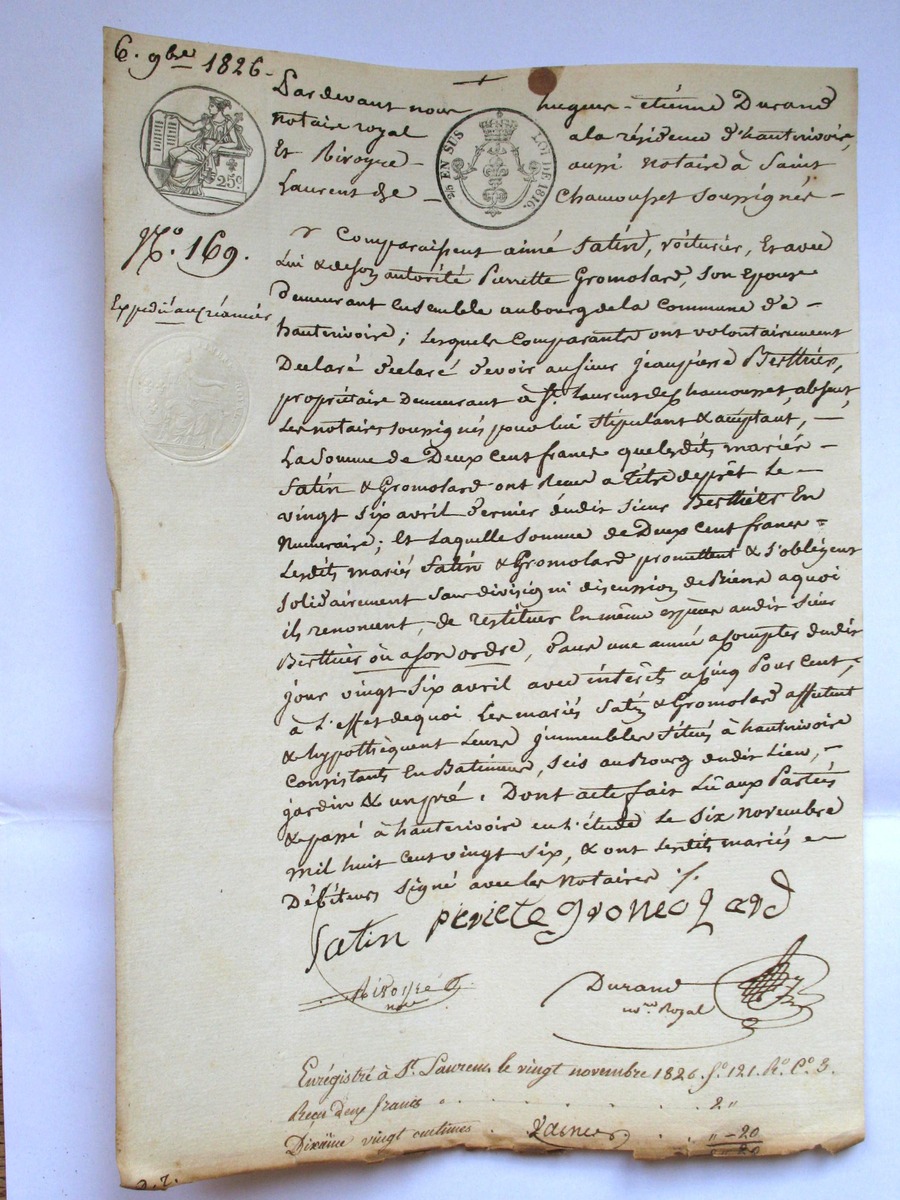 6. 9bre 1826-
Pardevant nous hugues-étienne Durand
notaire royal a la résidence d'hauterivoire,
Et Riroyre- aussi notaire à Saint
Laurent de- Chamousset soussignés-
25c.
25 EN SUS LOI DE 1816.
N.o 169.
Expédié au créancier
Comparaissent aimé Satin, voiturier, Et avec
Lui & de son autorité Pierrette Gromolard, son Epouse
demeurant Ensemble au bourg de la Commune d'e-
hauterivoire; Lesquels Comparants ont volontairement
Déclaré declaré devoir au sieur jean pierre Berthier,
propriétaire demeurant à St. Laurent de Chamousset, absent
Les notaires soussignés pour lui stipulant & acceptant, -
La Somme de Deux Cent francs que lesdits mariés-
Satin & Gromolard ont Reçue a titre de prêt Le-
vingt six avril dernier dudit sieur Berthier En
Numeraire; Et Laquelle Somme de Deux Cent francs-
Lesdits mariés Satin & Gromolard promettent & s'obligent
Solidairement Sans division ni discussion de Biens a quoi
ils renoncent, de restituer En même espèces audit sieur
Berthier ou a son ordre, dans une année a compter dudit
jour vingt six avril avec intérêts a cinq Pour Cent;
à L'effet de quoi Les mariés Satin & Gromolard affectent
& hypothèquent Leurs jmmeubles situés à hauterivoire
Consistants En Batiments, Scis au Bourg dudit Lieu,-
jardin & un pré. Dont acte fait Lû aux Parties
& passé à hauterivoire en L'étude Le Six novembre
mil huit Cent vingt Six, & ont lesdits mariés-
Débiteurs Signé avec les notaires ./.
Satin perrete gromolard
Durand
nore Royal
Enrégistré à St. Laurent le vingt novembre 1826. fo. 121. Ro. Co. 3.
Reçu deux francs . . . . . 2 "
Dixième vingt centimes . . " - 20